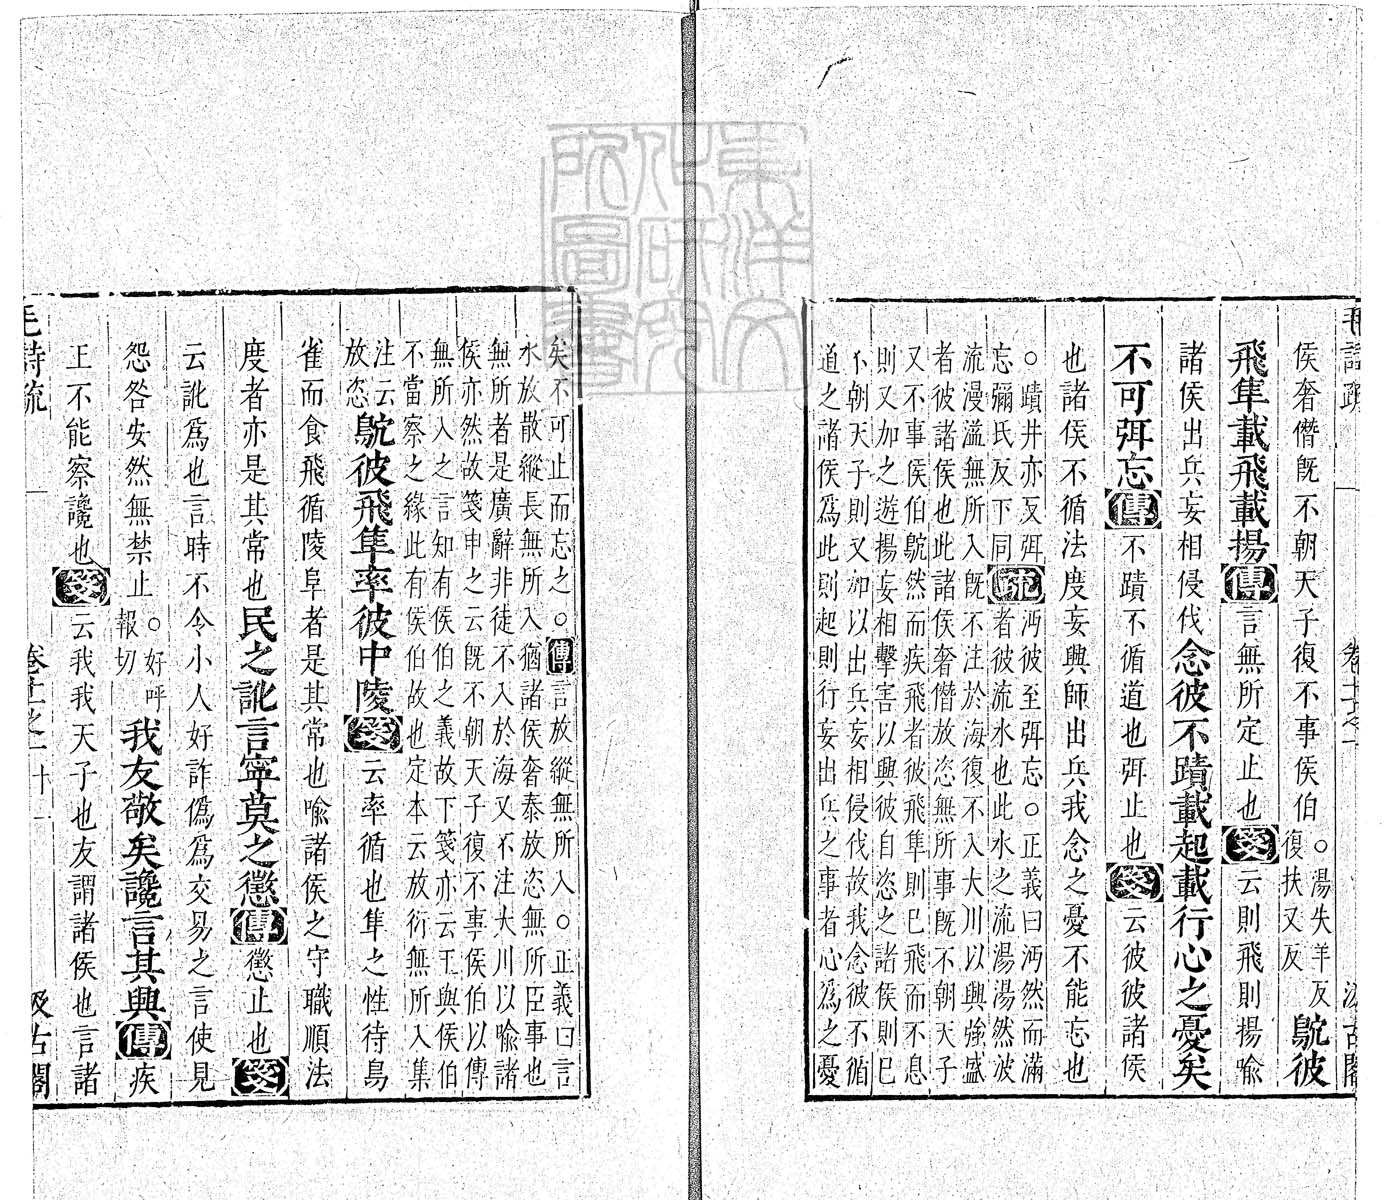 侯奢僭既不朝天子復不事侯伯○湯失羊反復扶又反鴥彼
飛隼載飛載揚傳言無所定止也箋云則飛則揚喻
諸侯出兵妄相侵伐念彼不蹟載起載行心之憂矣
不可弭忘傳不蹟不循道也弭止也箋云彼彼諸侯
也諸侯不循法度妄興師出兵我念之憂不能忘也
○蹟井亦反弭
忘彌氏反下同疏沔彼至弭忘○正義曰沔然而滿
者彼流水也此水之流湯湯然波
流漫溢無所入既不注於海復不入大川以興強盛
者彼諸侯也此諸侯奢僭放恣無所事既不朝天子
又不事侯伯鴥然而疾飛者彼飛隼則已飛而不息
則又加之遊揚妄相擊害以興彼自恣之諸侯則已
不朝天子則又加以出兵妄相侵伐故我念彼不循
道之諸侯為此則起則行妄出兵之事者心為之憂
毛詩疏
卷十一之一
汲古閣
矣不可止而忘之○傳言放縱無所入○正義曰言
水放散縱長無所入猶諸侯奢泰放恣無所臣事也
無所者是廣辭非徒不入於海又不注大川以喻諸
侯亦然故箋申之云既不朝天子復不事侯伯以傳
無所入之言知有侯伯之義故下箋亦云王與侯伯
不當察之緣此有侯伯故也定本云放衍無所入集
注云
放恣鴥彼飛隼率彼中陵箋云率循也隼之性待鳥
雀而食飛循陵阜者是其常也喻諸侯之守職順法
度者亦是其常也民之訛言寧莫之懲傳懲止也箋
云訛為也言時不令小人好詐偽為交易之言使見
怨咎安然無禁止○好呼報切我友敬矣讒言其興傳疾
王不能察讒也箋云我我天子也友謂諸侯也言諸
毛詩疏
卷十一之一
十一
汲古閣
東洋文化研究所圖書